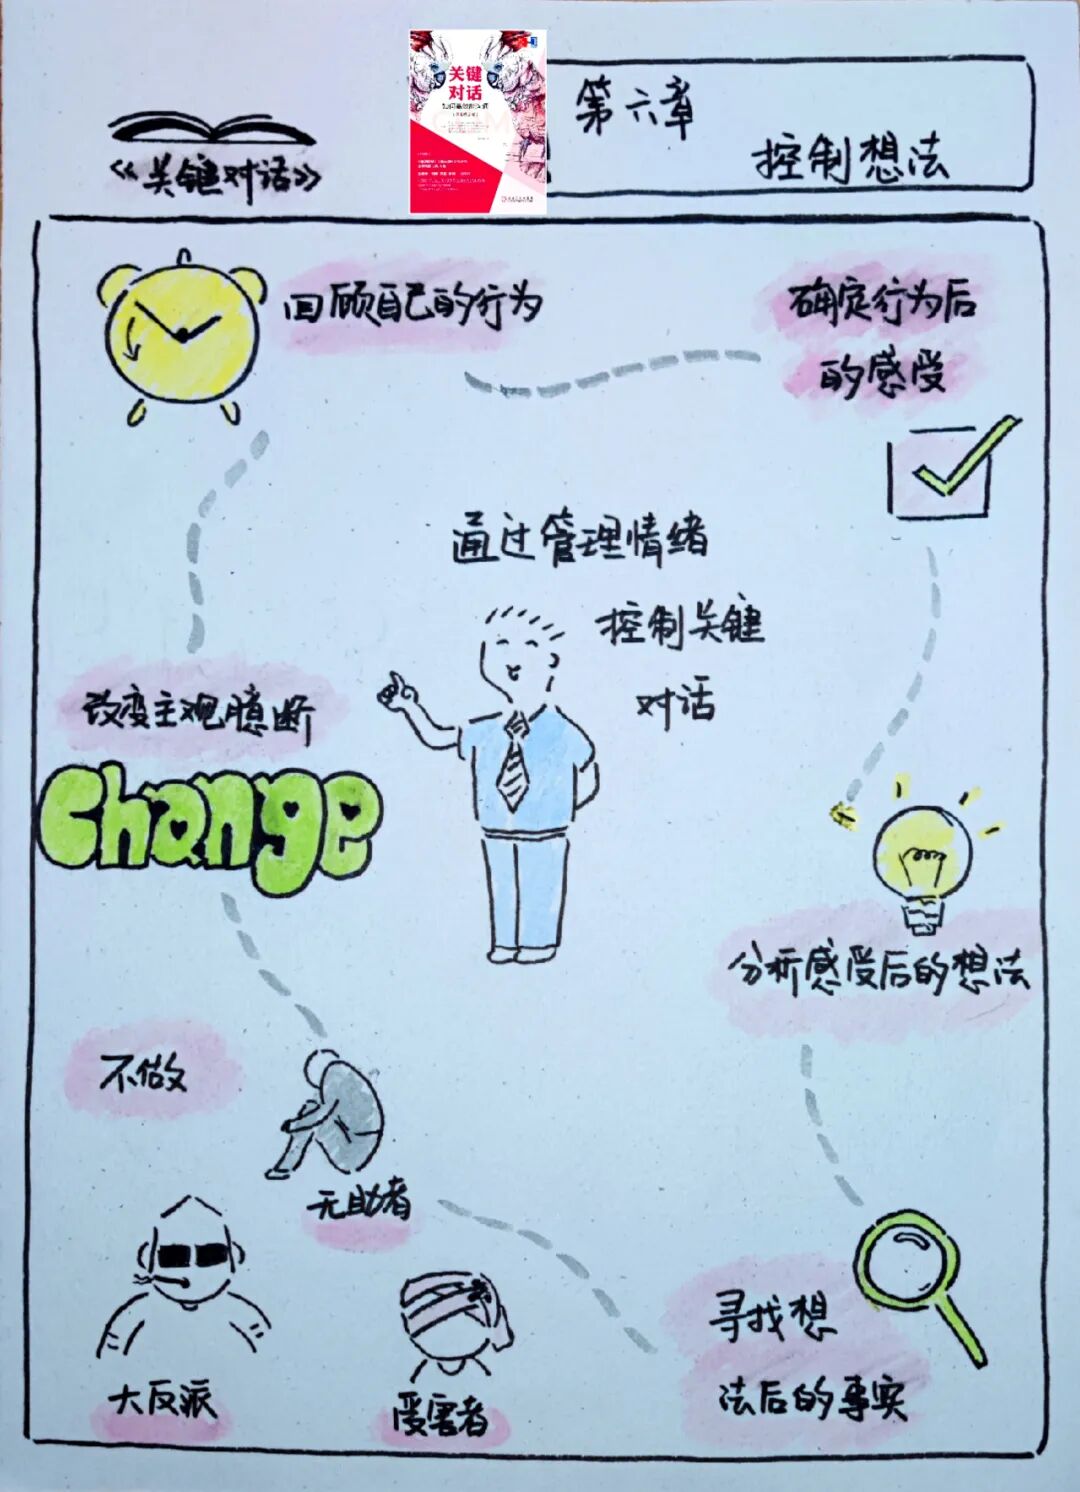 《关键对话》
关键
对话
第六章
控制想法
回顾自己的行为
确定行为后
的感受
通过管理情绪
控制关键
对话
改变主观臆断
change
分析感受后的想法
不做
无助者
大反派
受害者
寻找想
法后的事实